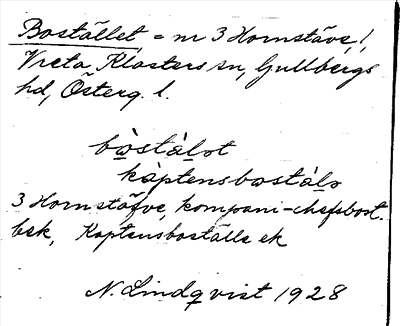 Bostället = nr 3 Hornstäve,!,
Vreta Klosters sn, Gullbergs
hd, Österg. l.
bo̲stàlot
kàptensbostàlo
3 Hornstäfve, kompani-chefsbost.
bsk, Kaptensboställe ek
N. Lindqvist 1928